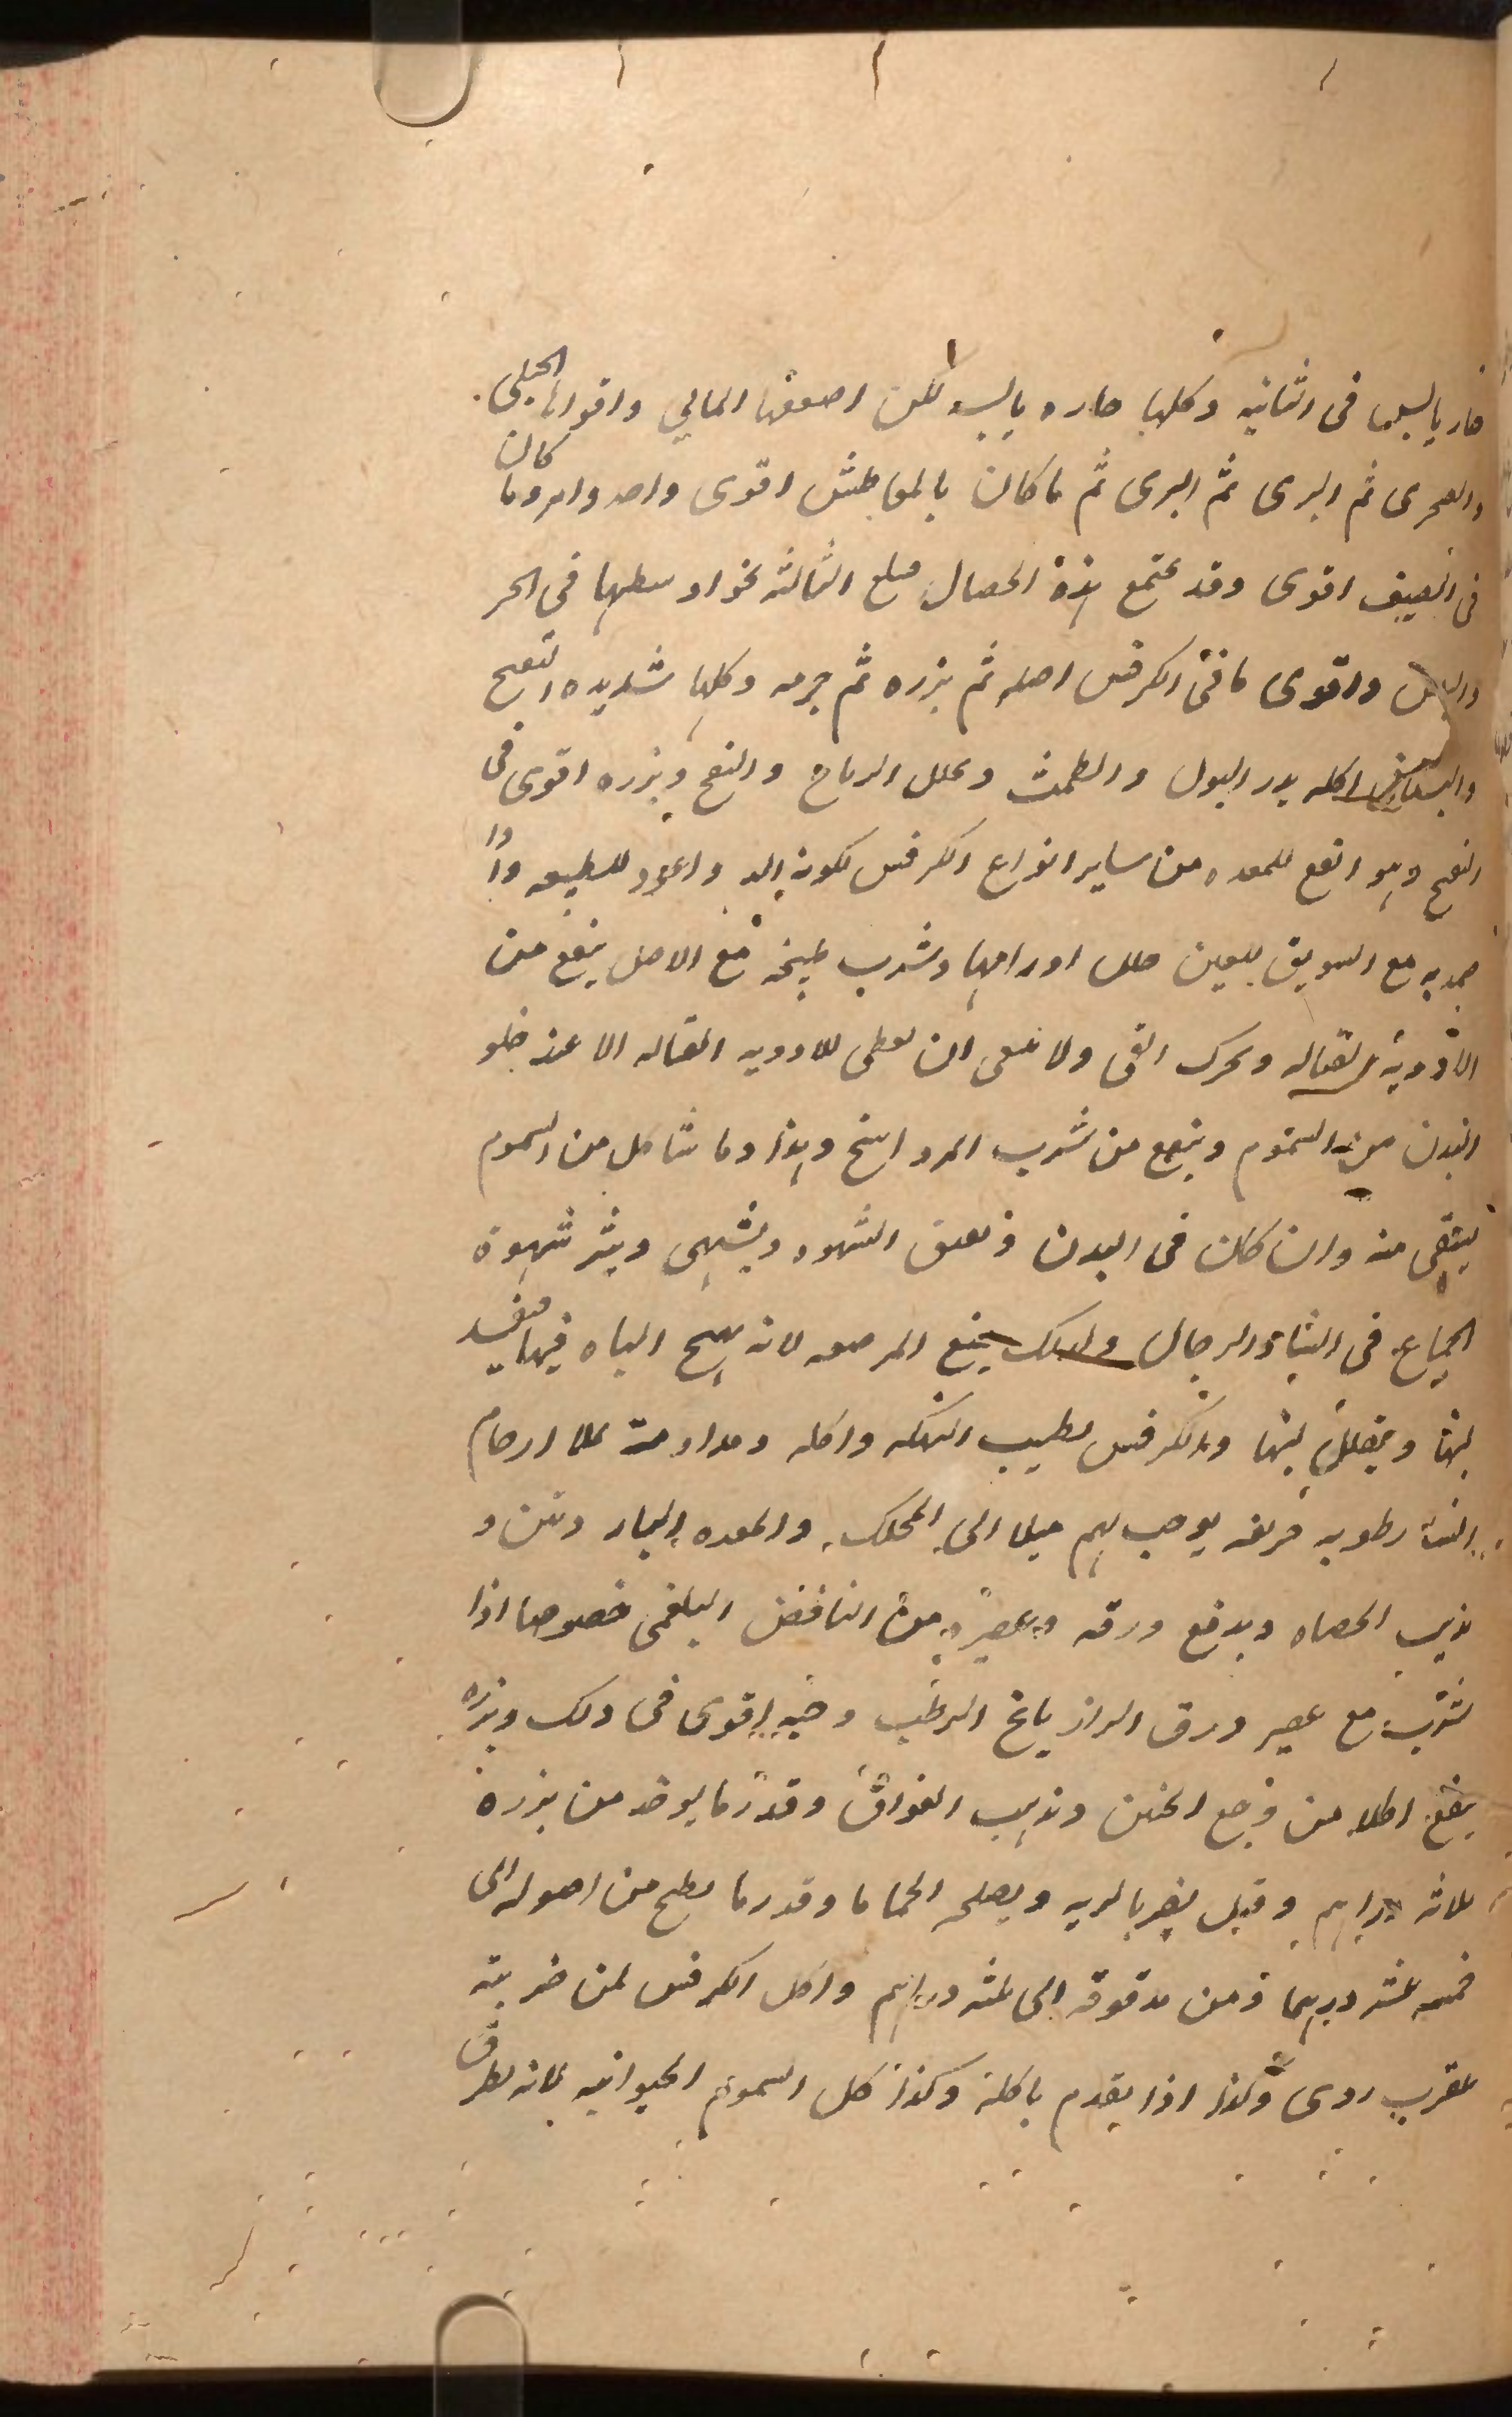 حار يابس فى الثانيه وكلها حاره يابسه لكن اضعفها المائي واقواها الجبلى
والصخرى ثم البرى ثم البرى ثم ما كان بالمواطش اقوى واحد وامر وما كان
فى الصيف اقوى وقد تجتمع هذه الخصال فبلغ الثالثه نحو اوسطها فى الحر
واليبس واقوى ما فى الكرفس اصله ثم بزره ثم جرمه وكلها شديده التفتيح
والبستانى اكله يدر البول والطمث ويحلل الرياح والنفخ وبزره اقوى فى
النفخ وهو انفع للمعده من ساير انواع الكرفس لكونه الذ واعود للطبيعه واذا
ضمد به مع السويق للعين حلل اورامها وشرب طبيخه مع الاصل ينفع من
الادويه القتاله ويحرك القى ولا ينبغى ان يعطى للادويه القتاله الا عند خلو
البدن من السموم وينفع من شرب المرداسنج وهذا وما شاكل من السموم
يتقى منه وان كان فى البدن الشهوه ويشهى ويثير شهوة
الجماع فى النساء والرجال ولذلك يمنع المرضعه لانه يهيج الباه فيها فيفسد
لبنها ويقلل لبنها والكرفس يطيب النكهه واكله ومداومته يملا ارحام
النساء رطوبه حريفه يوجب لهم ميلا الى المحكك والمعده البهار
يذيب الحصاه ويدفع ورقه وعصيره من النافض البلغمى خصوصا اذا
شرب مع عصير ورق الرازيانج الرطب وحبه اقوى فى ذلك وبزره
ينفع اكلا من وجع الجنبين ويذهب الفواق وقدر ما يوخذ من بزره
ثلاثه دراهم وقيل يضر بالريه ويصلحه الحماما وقدر ما يطبخ من اصوله الى
خمسه عشر درهما ومن مدقوقه الى ثلثه دراهم واكل الكرفس لمن ضربته
عقرب ردى وكذا اذا يقدم باكله وكذا كل السموم الحيوانيه لانه يطرق